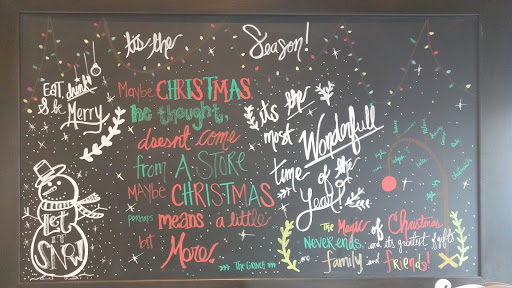 'tis the Season!
EAT, drink
& be Merry
Maybe CHRISTMAS
he thought,
doesn't come
from A STORE
MAYBE CHRISTMAS
perhaps means a little
bit
More.
>>> THE GRINCH <<<
it's the
most Wonderfull
time of the
Year!
let
it
SNOW
The Magic of Christmas
Never ends, and its greatest gifts
are family and friends!